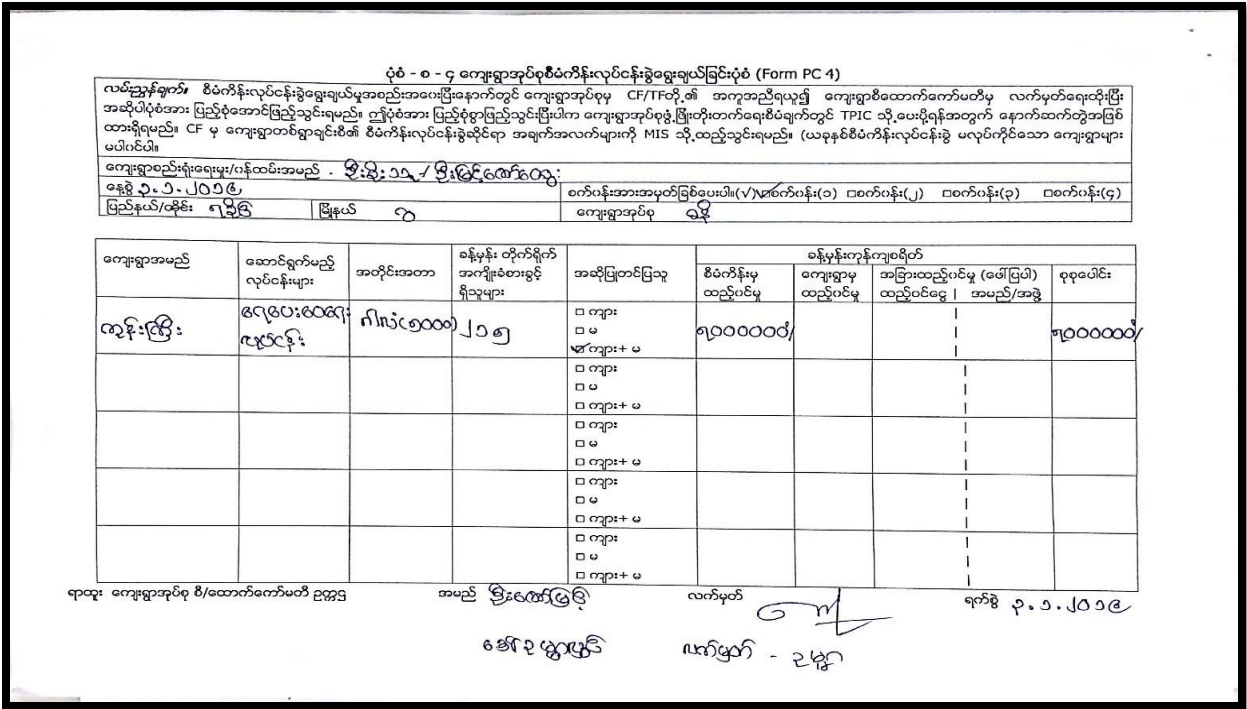 ပုံစံ - စ - ၄ ကျေးရွာအုပ်စုစီမံကိန်းလုပ်ငန်းခွဲရွေးချယ်ခြင်းပုံစံ (Form PC 4)
လမ်းညွှန်ချက်။ စီမံကိန်းလုပ်ငန်းခွဲရွေးချယ်မှုအစည်းအဝေးပြီးနောက်တွင် ကျေးရွာအုပ်စုမှ CF/TFတို့၏ အကူအညီရယူ၍ ကျေးရွာစီထောက်ကော်မတီမှ လက်မှတ်ရေးထိုးပြီး
အဆိုပါပုံစံအား ပြည့်စုံအောင်ဖြည့်သွင်းရမည်။ ဤပုံစံအား ပြည့်စုံစွာဖြည့်သွင်းပြီးပါက ကျေးရွာအုပ်စုဖွံ့ဖြိုးတိုးတက်ရေးစီမံချက်တွင် TPIC သို့ပေးပို့ရန်အတွက် နောက်ဆက်တွဲအဖြစ်
ထားရှိရမည်။ CF မှ ကျေးရွာတစ်ရွာချင်းစီ၏ စီမံကိန်းလုပ်ငန်းခွဲဆိုင်ရာ အချက်အလက်များကို MIS သို့ထည့်သွင်းရမည်။ (ယခုနှစ်စီမံကိန်းလုပ်ငန်းခွဲ မလုပ်ကိုင်သော ကျေးရွာများ
မပါဝင်ပါ။
ကျေးရွာစည်းရုံးရေးမှူး/ဝန်ထမ်းအမည် - ဦးစိုး / ဦးမြင့်ဇော်ထွေး
နေ့စွဲ ၃.၁.၂၀၁၉ စက်ဝန်းအားအမှတ်ခြစ်ပေးပါ။(√) ☑စက်ဝန်း(၁) □စက်ဝန်း(၂) □စက်ဝန်း(၃) □စက်ဝန်း(၄)
ပြည်နယ်/တိုင်း ရခိုင် မြို့နယ် ဂွ ကျေးရွာအုပ်စု
ကျေးရွာအမည် ဆောင်ရွက်မည့် လုပ်ငန်းများ အတိုင်းအတာ ခန့်မှန်း တိုက်ရိုက် အကျိုးခံစားခွင့် ရှိသူများ အဆိုပြုတင်ပြသူ ခန့်မှန်းကုန်ကျစရိတ်
စီမံကိန်းမှ ထည့်ဝင်မှု ကျေးရွာမှ ထည့်ဝင်မှု အခြားထည့်ဝင်မှု (ဖော်ပြပါ) ထည့်ဝင်ငွေ | အမည်/အဖွဲ့ စုစုပေါင်း
ကွန်းကြီး ရေပေးဝေရေး လုပ်ငန်း ဂါလံ(၅၀၀၀) ၂၁၅ □ ကျား
□ မ
☑ ကျား+ မ ၅၀၀၀၀၀၀/ ၅၀၀၀၀၀၀/
□ ကျား
□ မ
□ ကျား+ မ
□ ကျား
□ မ
□ ကျား+ မ
□ ကျား
□ မ
□ ကျား+ မ
□ ကျား
□ မ
□ ကျား+ မ
ရာထူး ကျေးရွာအုပ်စု စီ/ထောက်ကော်မတီ ဥက္ကဋ္ဌ အမည် လက်မှတ် ရက်စွဲ ၃.၁.၂၀၁၉
လက်မှတ် -